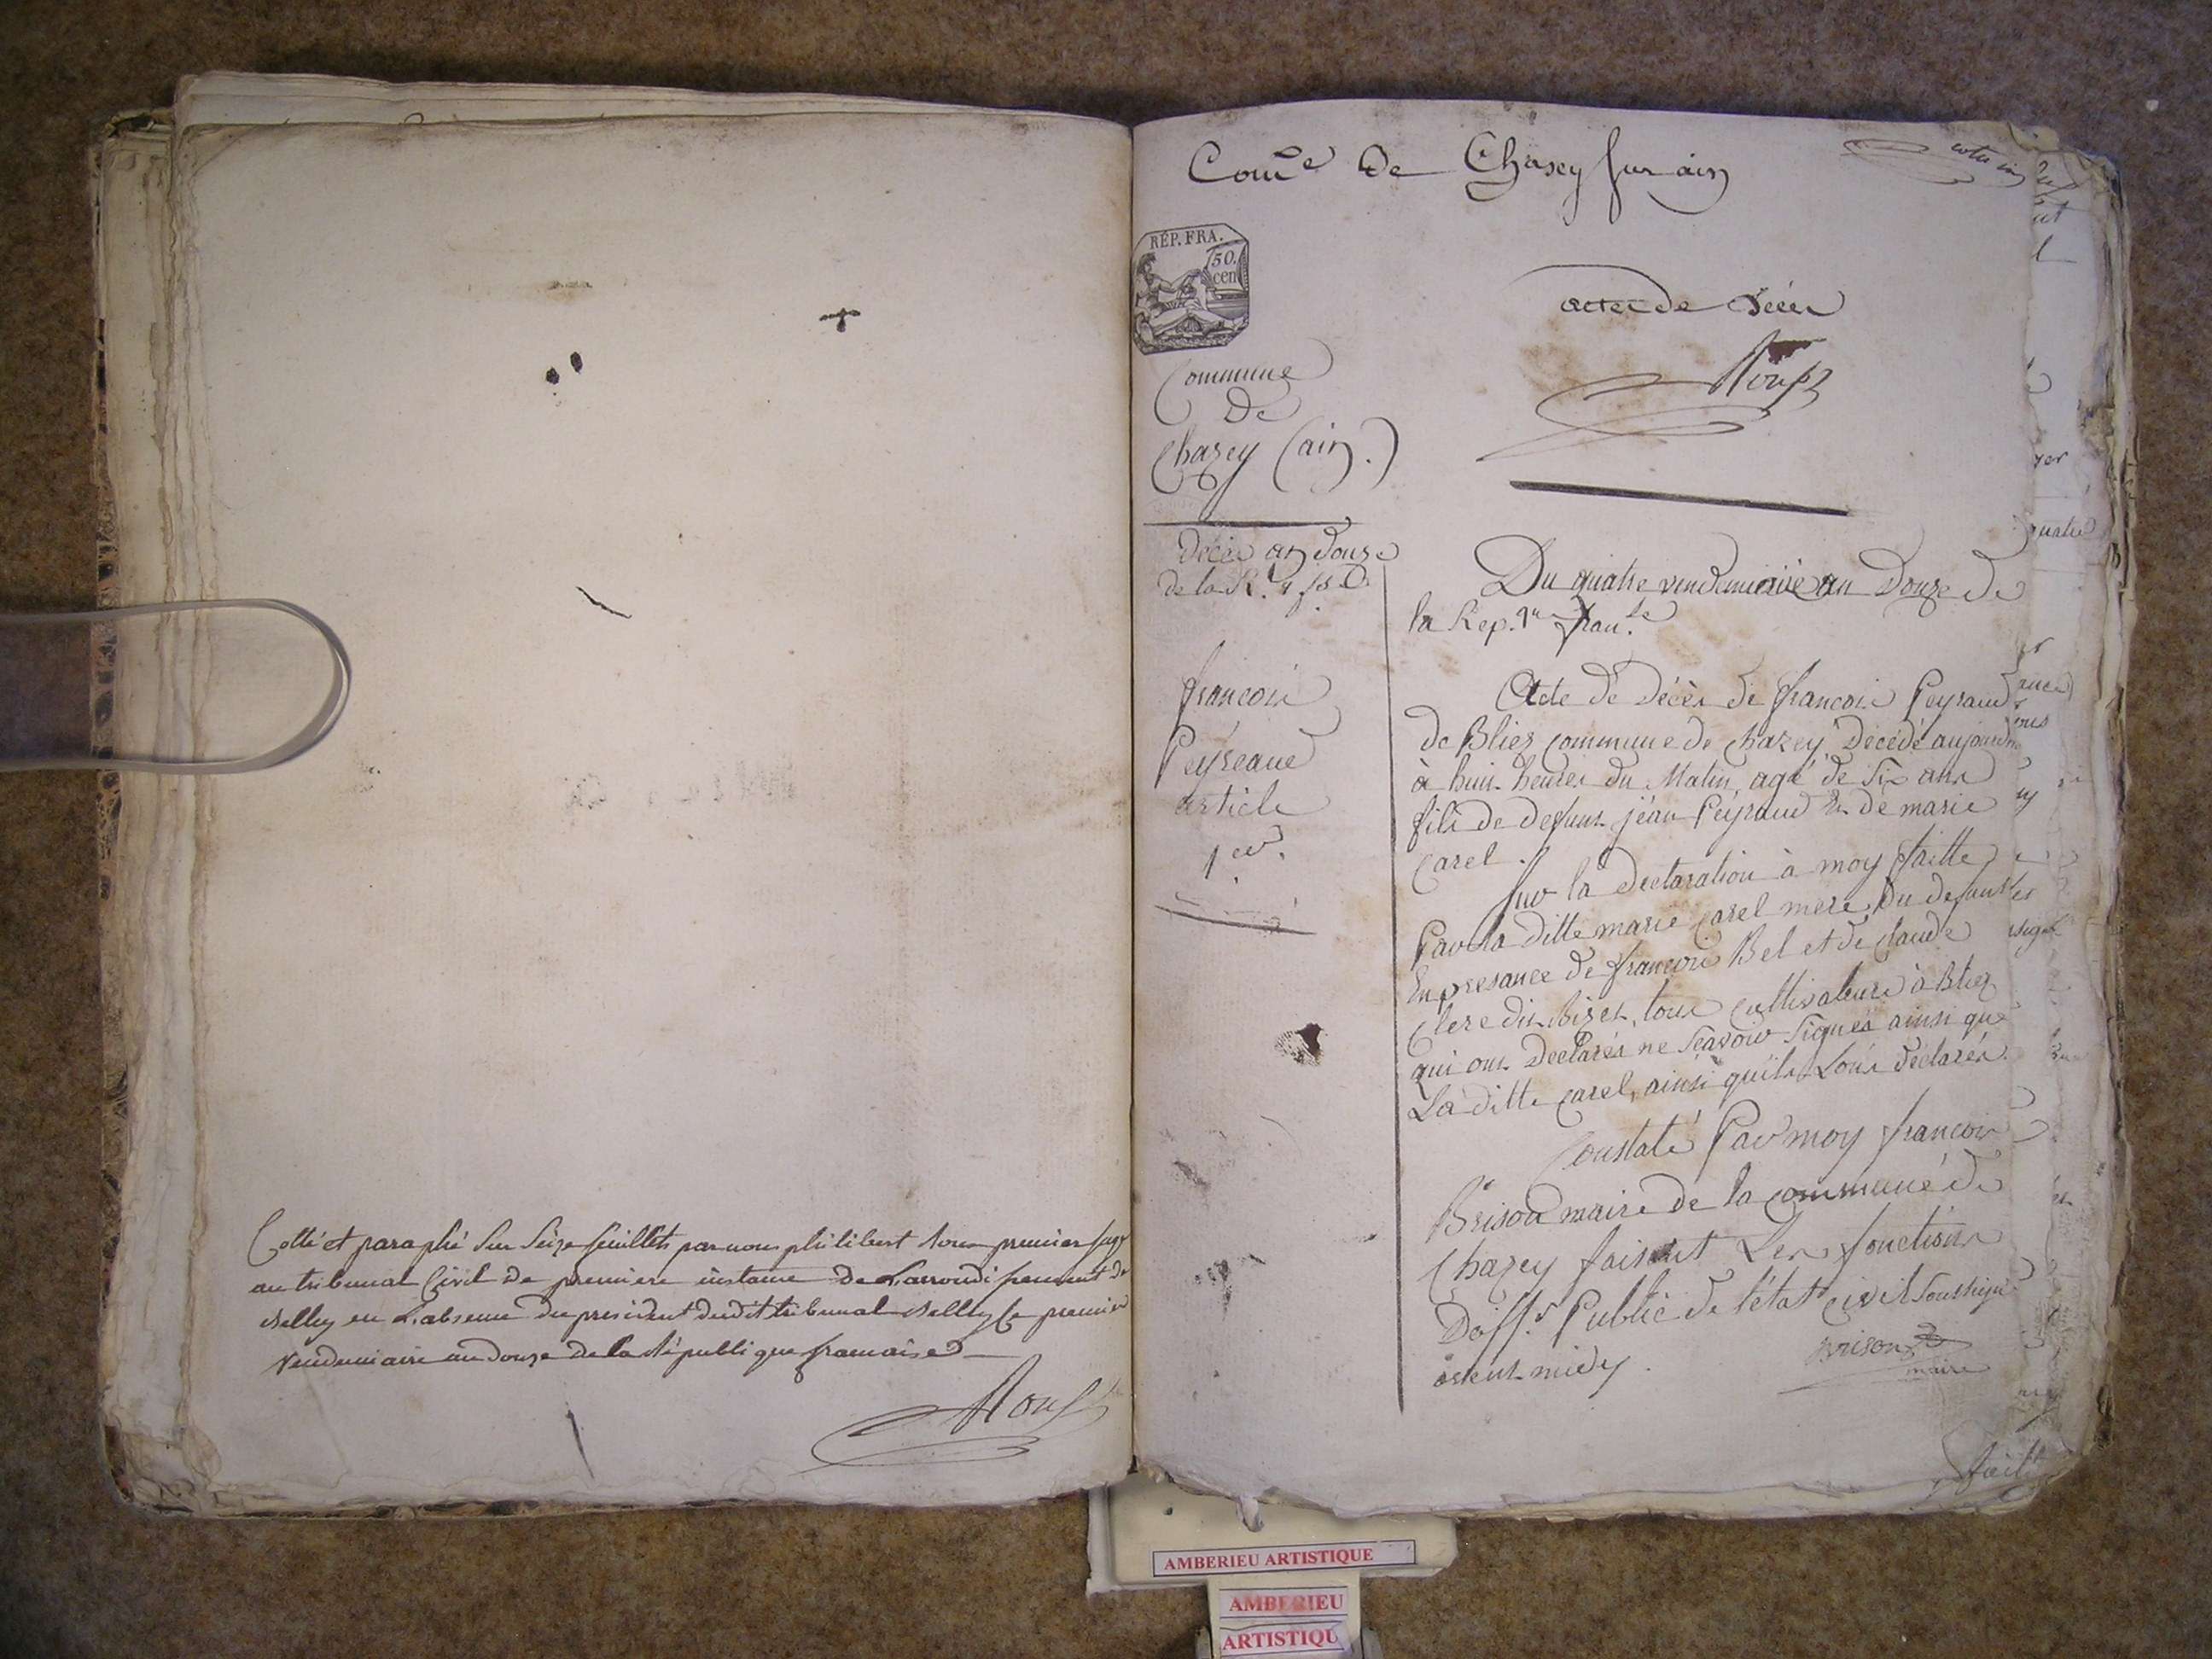 Cotté et paraphé sur seize feuillets par nous philibert premier juge
au tribunal Civil de premiere instance de Larrondissement de
Belley en L'absence du president dudit tribunal Belley le premier
vendemiaire an douze de la République française
Comne De Chasey sur ain
RÉP. FRA.
50.
cen
actes de décès
Commune
De
Chazey (ain.)
Décès an douze
de la R.
francois
Peyreaud
article
1er.
Du quatre vendemiaire an Douze de
la Rep.que fran.se
Acte de Décès de francois Peyraud
de Bliez commune de Chazey, Décédé aujourdhui
à huit heures du Matin, agé de six ans
fils de defunt jean Peyraud & de marie
Carel.
Sur la Declaration à moy faitte
Par la ditte marie Carel mere Du defunt
En presance de francois Bel et de claude
Clere dit Bizet, tous Cultivateurs à Bliez
qui ont Declarés ne scavoir signer ainsi que
La ditte Carel, ainsi quils Lont déclarés.
Constaté Par moy francois
Brison maire de la commune de
Chazey faisant Les fonctions
Doff.r Public de l'état civil soussigné
Brison
maire
AMBERIEU ARTISTIQUE
AMBERIEU
ARTISTIQU